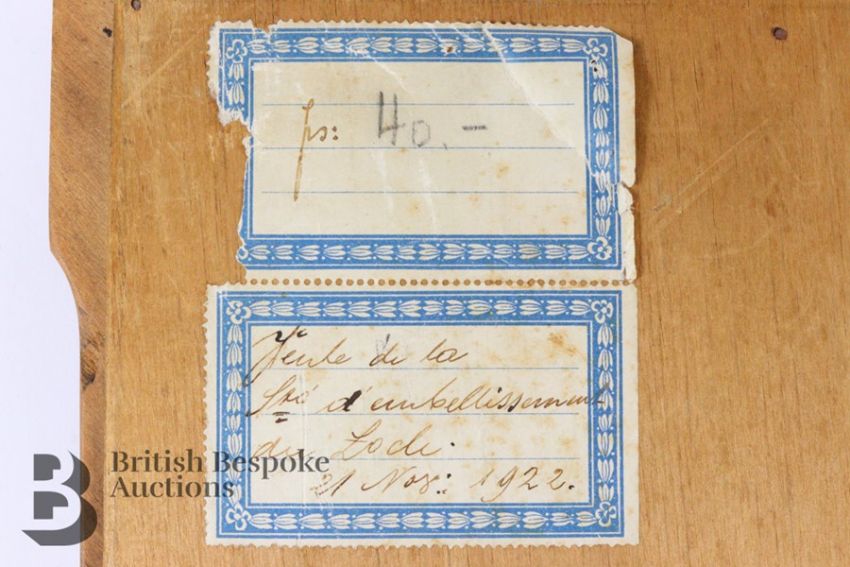 fs: 40.-
Vente de la
Sté d'embellissement
du Locle.
21 Nov: 1922.
British Bespoke
Auctions
B